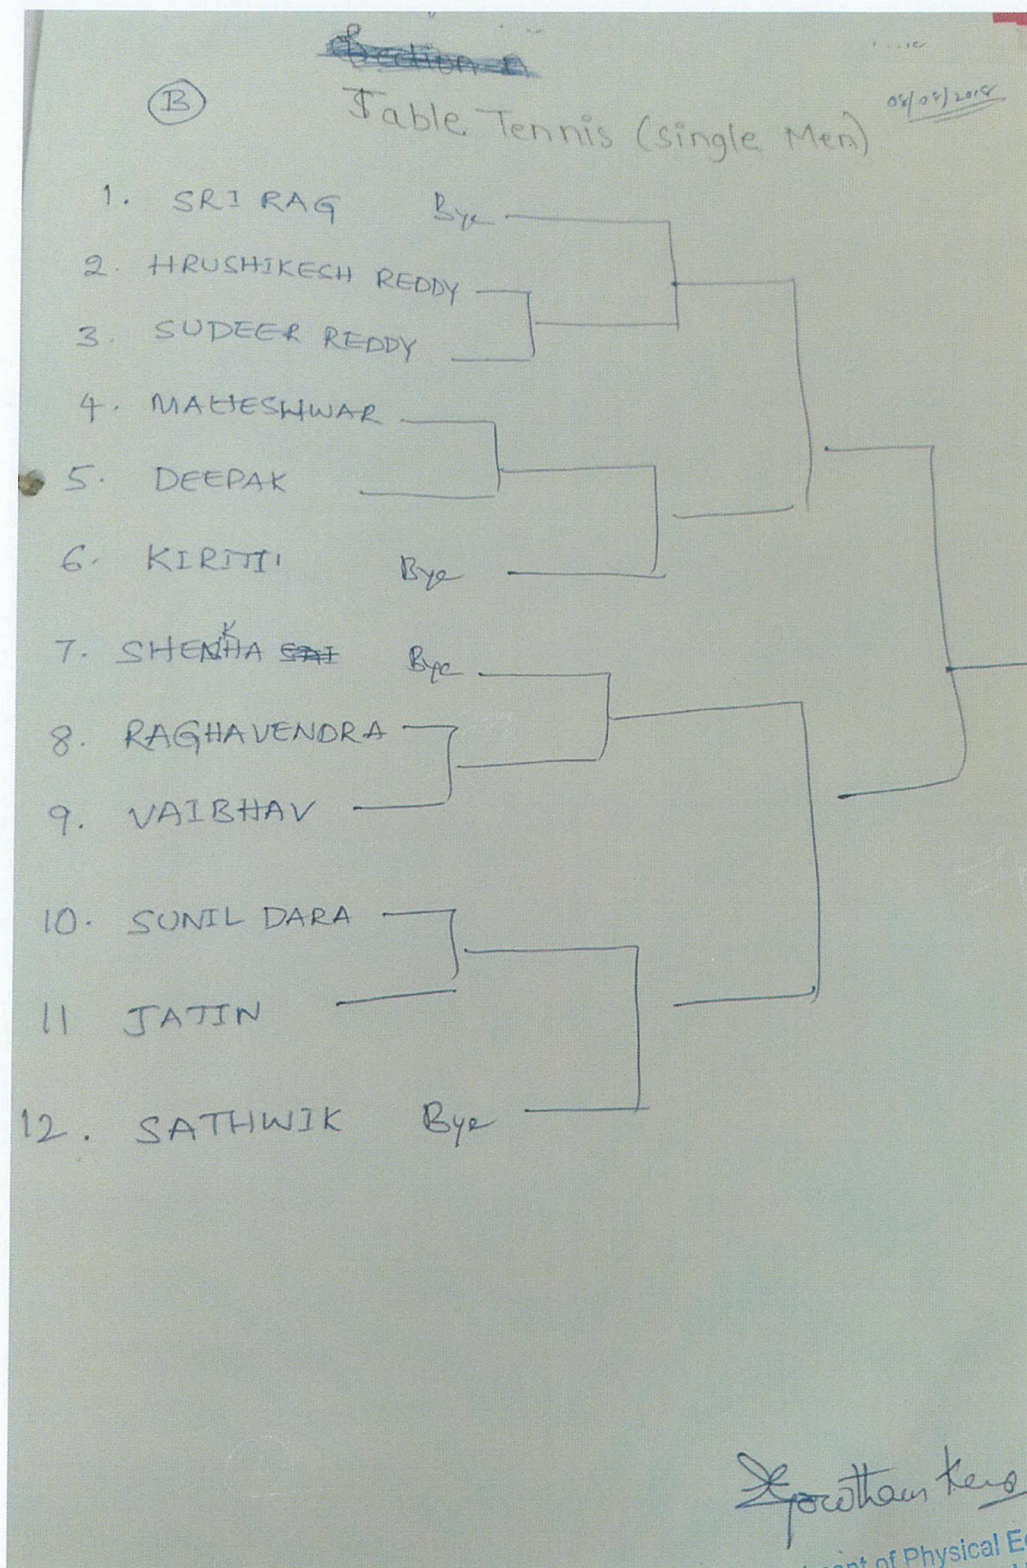 B
Table Tennis (Single Men)
1. SRI RAG Bye
2. HRUSHIKESH REDDY
3. SUDEER REDDY
4. MAHESHWAR
5. DEEPAK
6. KIRITI Bye
7. SHENKHA Bye
8. RAGHAVENDRA
9. VAIBHAV
10. SUNIL DARA
11 JATIN
12. SATHWIK Bye
of Physical